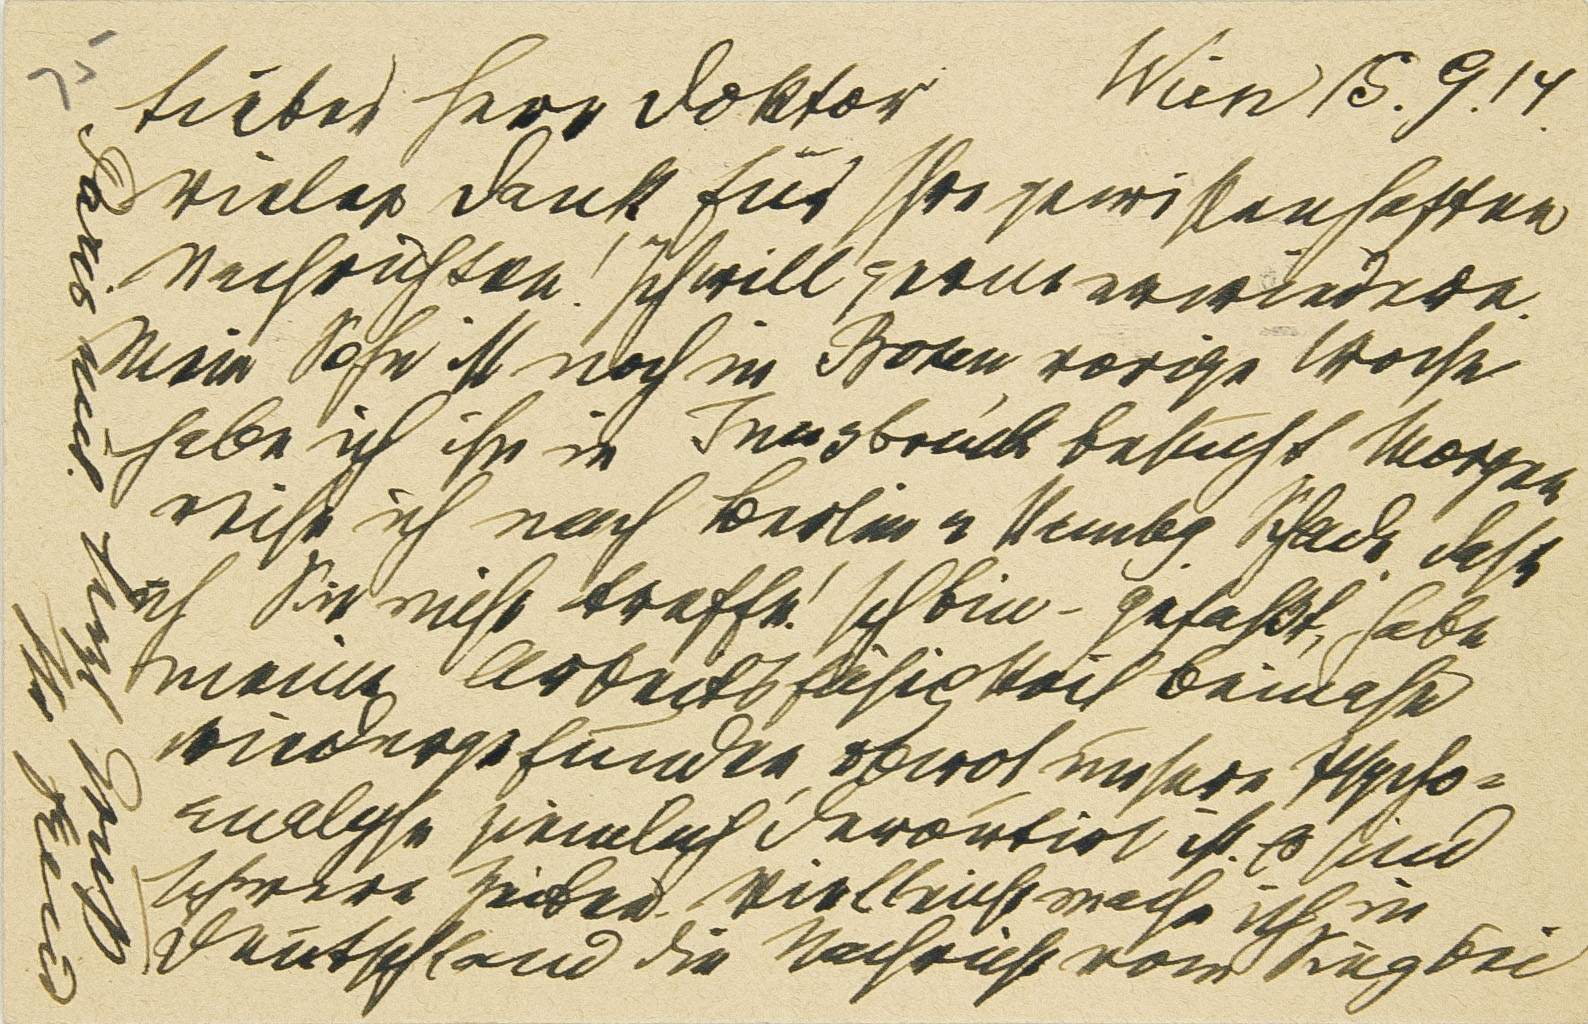 Wien 15.9.14.
Lieber Herr Doktor
Vielen Dank für Ihre gewissenhaften
Nachrichten! Ich will gerne erwiedern.
Mein Sohn ist noch in Bozen vorige Woche
habe ich ihn in Innsbruck besucht Morgen
reise ich nach Berlin u Hambg Schade, daß
ich Sie nicht treffe! Ich bin gefaßt, habe
meine Arbeitsfähigkeit beinahe
wiedergefunden, obwol unsere Psycho-
analyse ziemlich deroutirt ist. Es sind
schwere Zeiten. Vielleicht mache ich in
Deutschland die Nachricht vom Sieg bei
Paris mit. Herzl Gruß
Ihr Freud
75